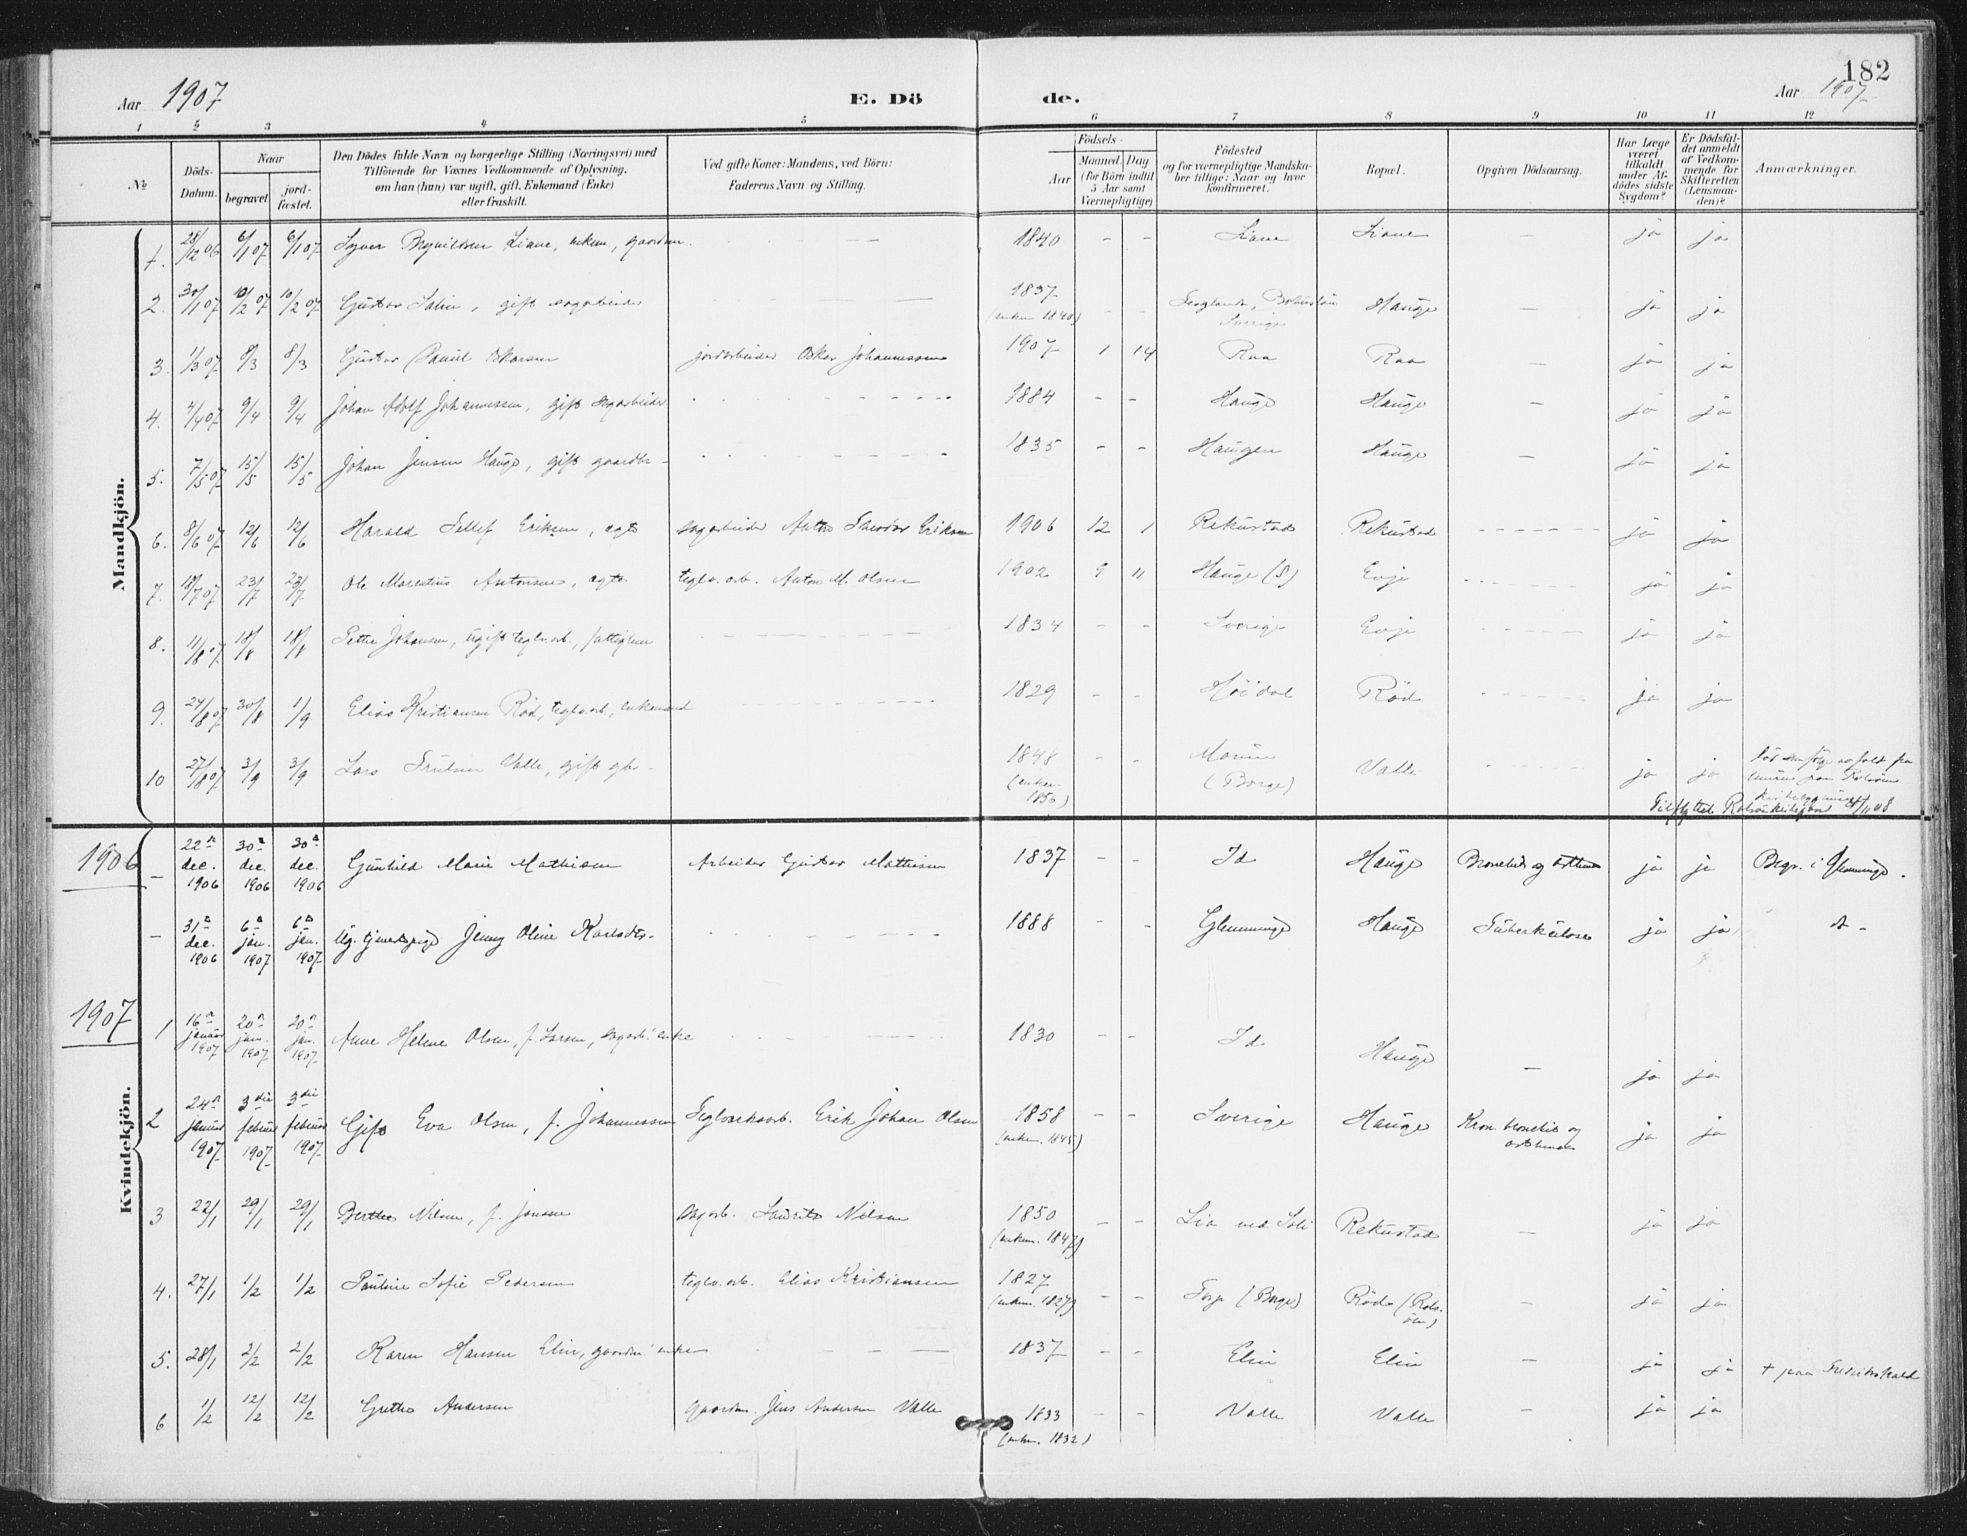 182
Aar 1907
E. Dö
de.
Aar 1907
1 2 3 4 5 6 7 8 9 10 11 12
№
Döds-
Datum.
Naar
begravet.
jord-
fæstet.
Den Dödes fulde Navn og borgerlige Stilling (Næringsvei) med
Tilföiende for Voxnes Vedkommende af Oplysning,
om han (hun) var ugift, gift, Enkemand (Enke)
eller fraskilt.
Ved gifte Koner: Mandens, ved Börn:
Faderens Navn og Stilling.
Födsels-
Aar
Maaned. Dag
(for Börn indtil
5 Aar samt
Værnepligtige)
Födested
og for værnepligtige Mandska-
ber tillige: Naar og hvor
konfirmeret.
Bopæl.
Opgiven Dödsaarsag.
Har Læge
været
tilkaldt
under Af-
dödes sidste
Sygdom?
Er Dödsfal-
det anmeldt
af Vedkom-
mende for
Skifteretten
(Lensman-
den)?
Anmærkninger.
Mandkjön.
1. 28/12 06 6/1 07 6/1 07 Liane, gaardm. 1840 - - Liane Liane - ja ja
2. 30/1 07 10/2 07 10/2 07 Gustav Salin, gift sagarbeider 1837 - - Bohuslän Hauge - ja ja
(enkm 1840) Sverige
3. 1/3 07 8/3 8/3 Gustav Daniel Oskarsen jordarbeider Oskar Johannessen 1907 1 14 Raa Raa - ja ja
4. 4/4 07 9/4 9/4 Johan Adolf Johannessen, gift sagarbeider 1884 - - Hauge Hauge - ja ja
5. 7/5 07 15/5 15/5 Johan Jensen Hauge, gift gaardbr. 1835 - - Haugen Hauge - ja ja
6. 8/6 07 12/6 12/6 Harald Eriksen, ægte sagarbeider Anton Theodor Eriksen 1906 12 1 Rekustad Rekustad ja ja
7. 18/7 07 23/7 23/7 Ole Marentius Antonsen, ægte teglv. arb. Anton M. Olsen 1902 9 11 Hauge (S) Evje ja ja
8. 11/8 07 18/8 18/8 Petter Johansen, ugift teglv.arb., fattiglem 1834 - - Sverige Evje ja ja
9. 24/8 07 30/8 1/9 Elias Kristiansen Röd, teglv.arb, enkemand 1829 - - Höidal Röd ja ja
10 27/8 07 3/9 3/9 Lars Trulsen Valle, gift gbr. 1848 - - (Borge) Valle ja ja
(enkm. 1850)
Tilflyttet 08
1906
- 22n dec. 1906 30n dec. 1906 30n dec. 1906 Gunhild Marie Mathisen Arbeider Gustav Mathisen 1837 - - Id Hauge Bronchit og asthma ja ja Begr. i Glemminge.
- 31n dec. 1906 6n jan. 1907 6n jan. 1907 Ug. tjenestepige Jenny Oline Karlsdtr. 1888 - - Glemminge Hauge Tuberkulose ja ja
1907
Kvindekjön.
1 16n januar 1907 20n jan. 1907 20n jan. 1907 Anne Helene Olsen, f. Larsen, sagarb. enke 1830 - - Id Hauge - ja ja
2 24n januar 1907 3die februar 1907 3die februar 1907 Gift Eva Olsen, f. Johannessen Teglverksarb. Erik Johan Olsen 1858 - - Sverige Hauge Kron. bronchit og asthma ja ja
(enkm. 1845)
3 22/1 29/1 29/1 Berthe Nilsen, f. Jensen sagarb. Laurits Nilsen 1850 - - Lia ved Soli Rekustad - ja ja
(enkm. 1847)
4. 27/1 1/2 1/2 Pauline Sofie Pedersen teglv.arb. Elias Kristiansen 1827 - - Torp (Borge) Röd (Rolsöen) - ja ja
(enkm. 1827)
5. 28/1 2/2 2/2 Karen Hansen Elin, gaardm. enke 1837 - - Elin Elin - ja ja + paa Fredrikshald
6 1/2 12/2 12/2 Grethe Andersen gaardm. Jens Andersen Valle 1833 - - Valle Valle - ja ja
(enkm. 1832)